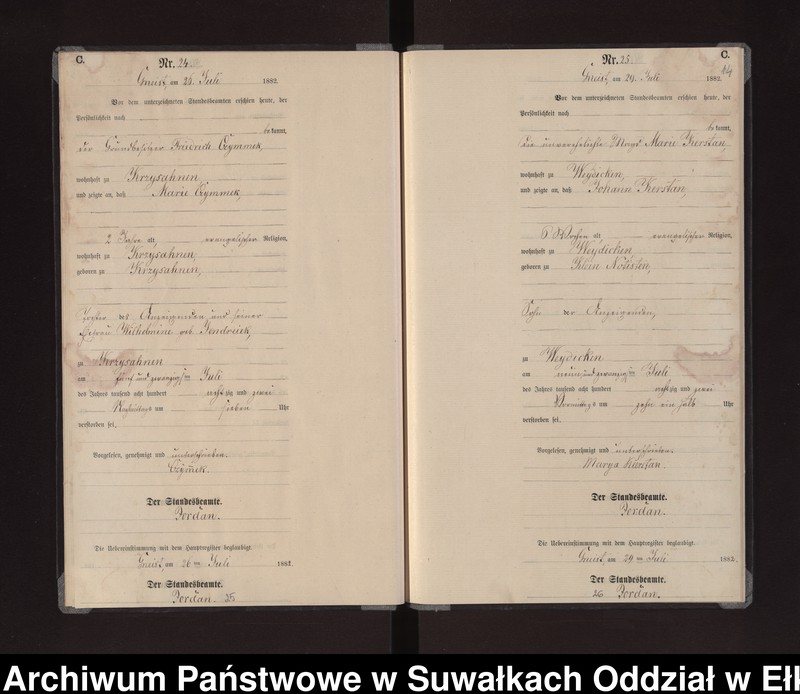 C.
Nr. 24.
am 25. Juli 1882.
Vor dem unterzeichneten Standesbeamten erschien heute, der
Persönlichkeit nach
bekannt,
der Grundbesitzer Friedrich Czymmek,
wohnhaft zu Krzysahnen,
und zeigte an, daß Marie Czymmek,
2 Jahre alt, evangelischer Religion,
wohnhaft zu Krzysahnen
geboren zu Krzysahnen,
Tochter des Anzeigenden und seiner
Ehefrau Wilhelmine geb. Jendreiek,
zu Krzysahnen
am fünf und zwanzigsten Juli
des Jahres tausend acht hundert achtzig und zwei
Nachmittags um sieben Uhr
verstorben sei.
Vorgelesen, genehmigt und unterschrieben.
Czymek.
Der Standesbeamte.
Jordan.
Die Uebereinstimmung mit dem Hauptregister beglaubigt.
am 26ten Juli 1882.
Der Standesbeamte.
Jordan. 25
C.
Nr. 25.
am 29. Juli 1882.
Vor dem unterzeichneten Standesbeamten erschien heute, der
Persönlichkeit nach
bekannt,
die unverehelichte Magd Marie Kerstan,
wohnhaft zu Weydicken,
und zeigte an, daß Johann Kerstan,
6 Wochen alt, evangelischer Religion,
wohnhaft zu Weydicken
geboren zu Klein Notisten,
Sohn der Anzeigenden,
zu Weydicken
am neun und zwanzigsten Juli
des Jahres tausend acht hundert achtzig und zwei
Vormittags um zehn ein halb Uhr
verstorben sei.
Vorgelesen, genehmigt und unterschrieben.
Marga Kürstan.
Der Standesbeamte.
Jordan.
Die Uebereinstimmung mit dem Hauptregister beglaubigt.
am 29ten Juli 1882.
Der Standesbeamte.
26 Jordan.
Archiwum Państwowe w Suwałkach Oddział w Ełk